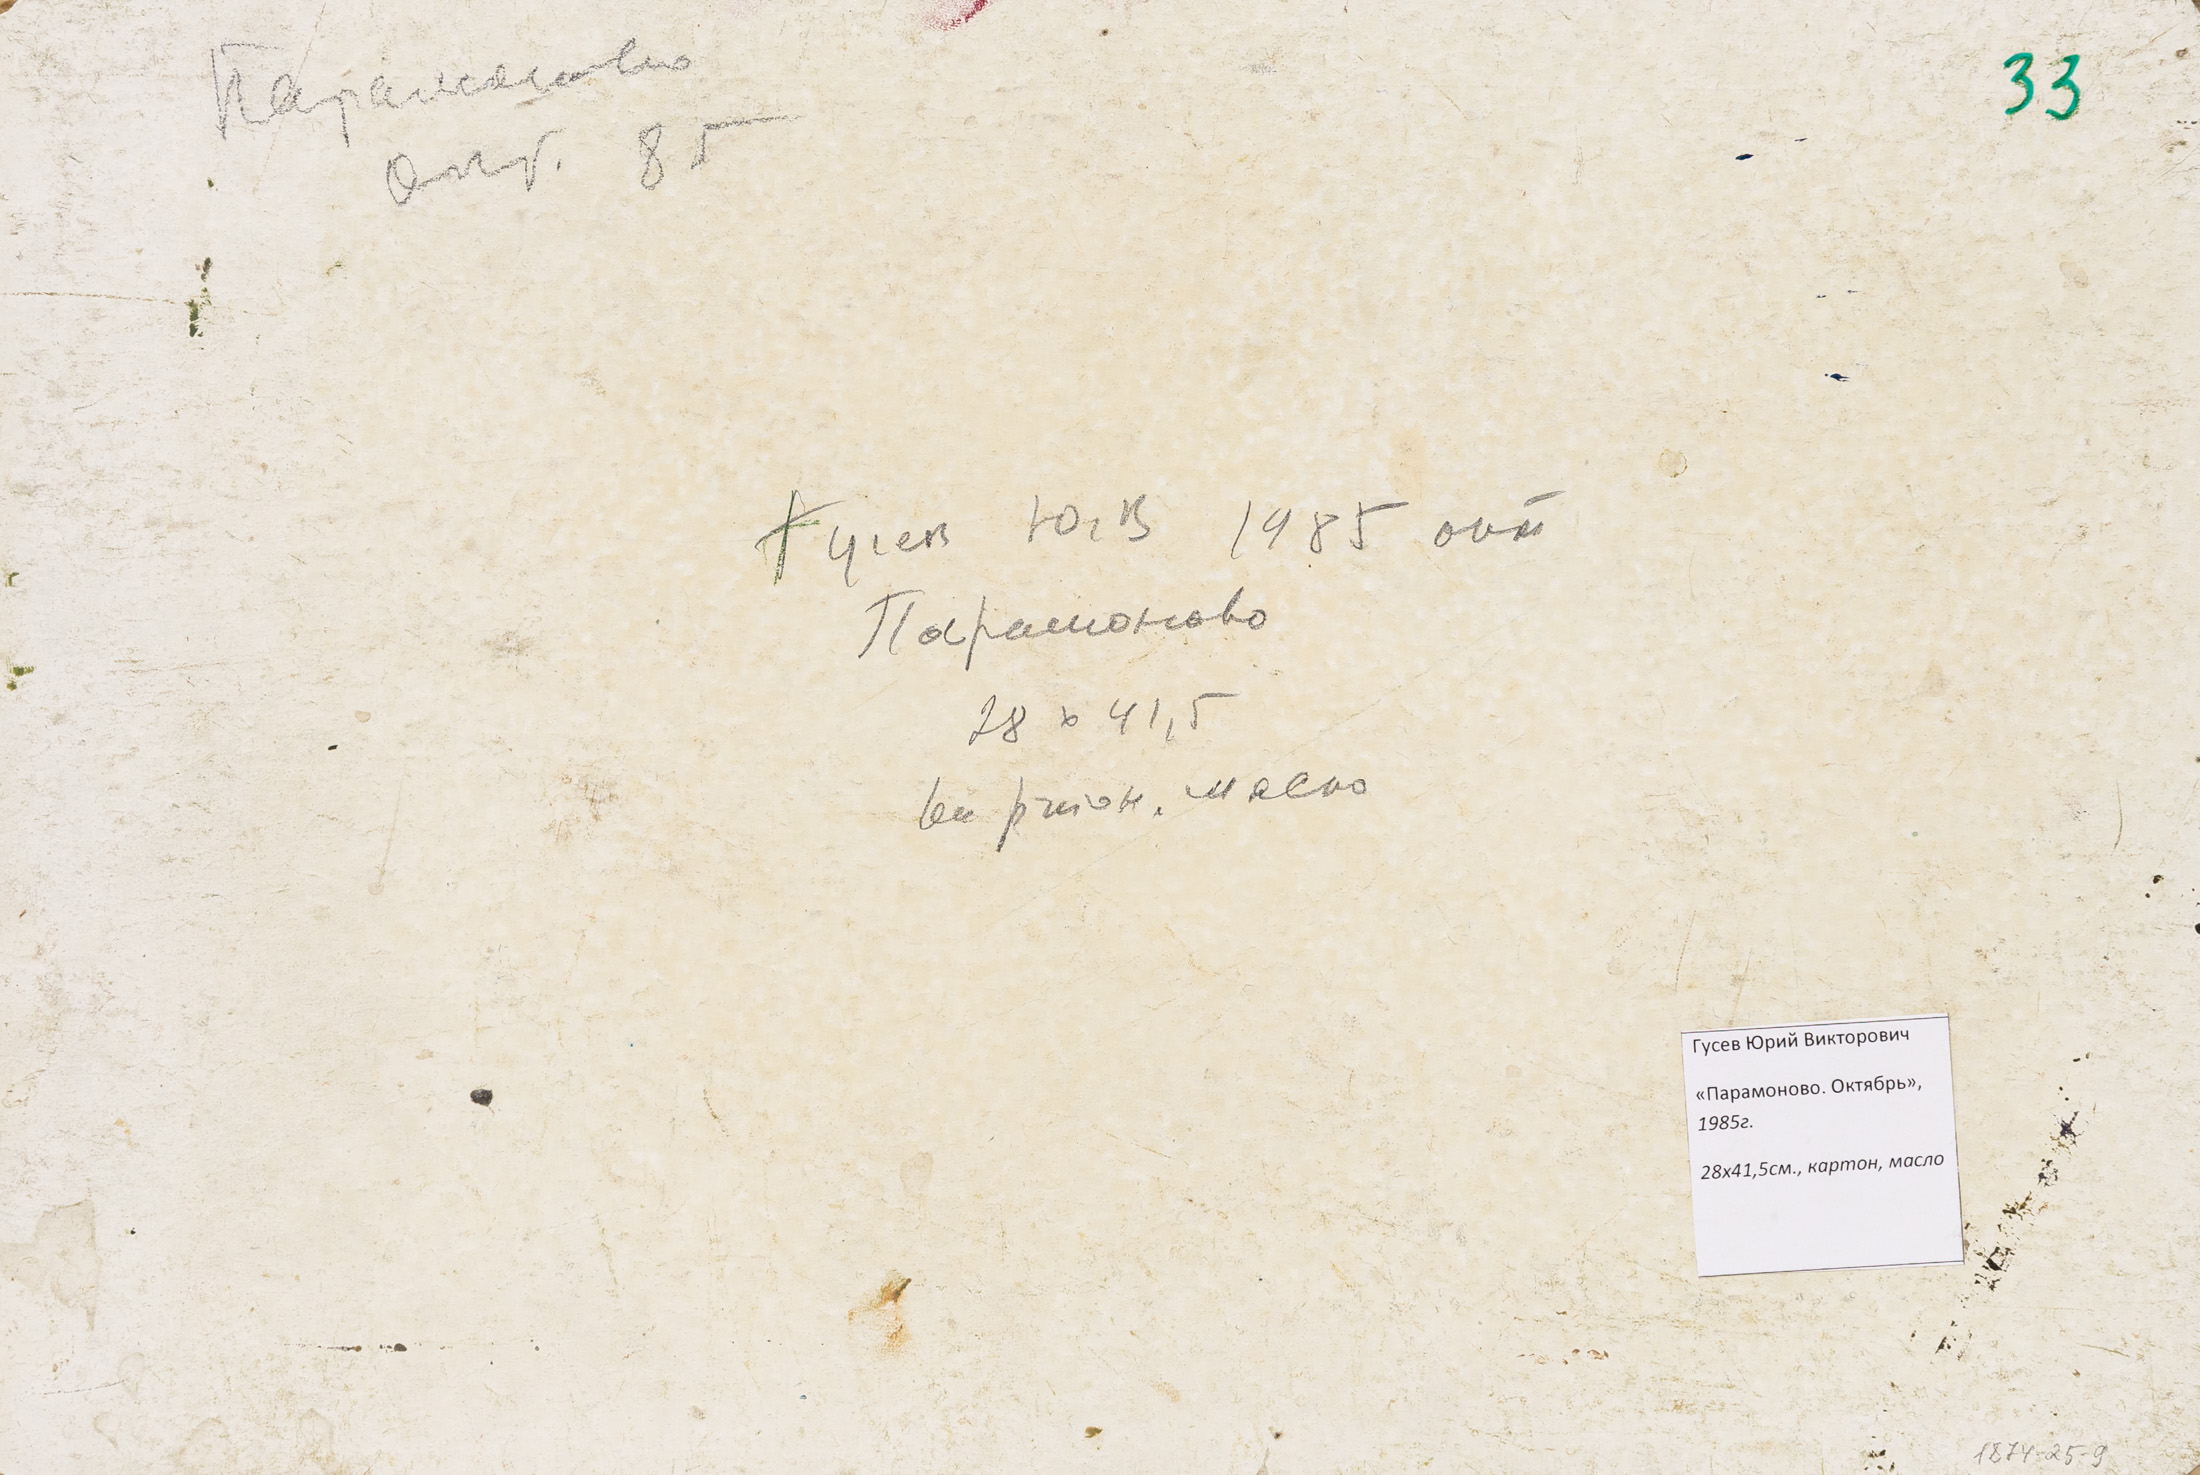 Парамоново
окт. 85
33
Гусев Ю.В 1985 окт
Парамоново
28 х 41,5
картон. масло
Гусев Юрий Викторович
«Парамоново. Октябрь»,
1985г.
28х41,5см., картон, масло
1874-25-9